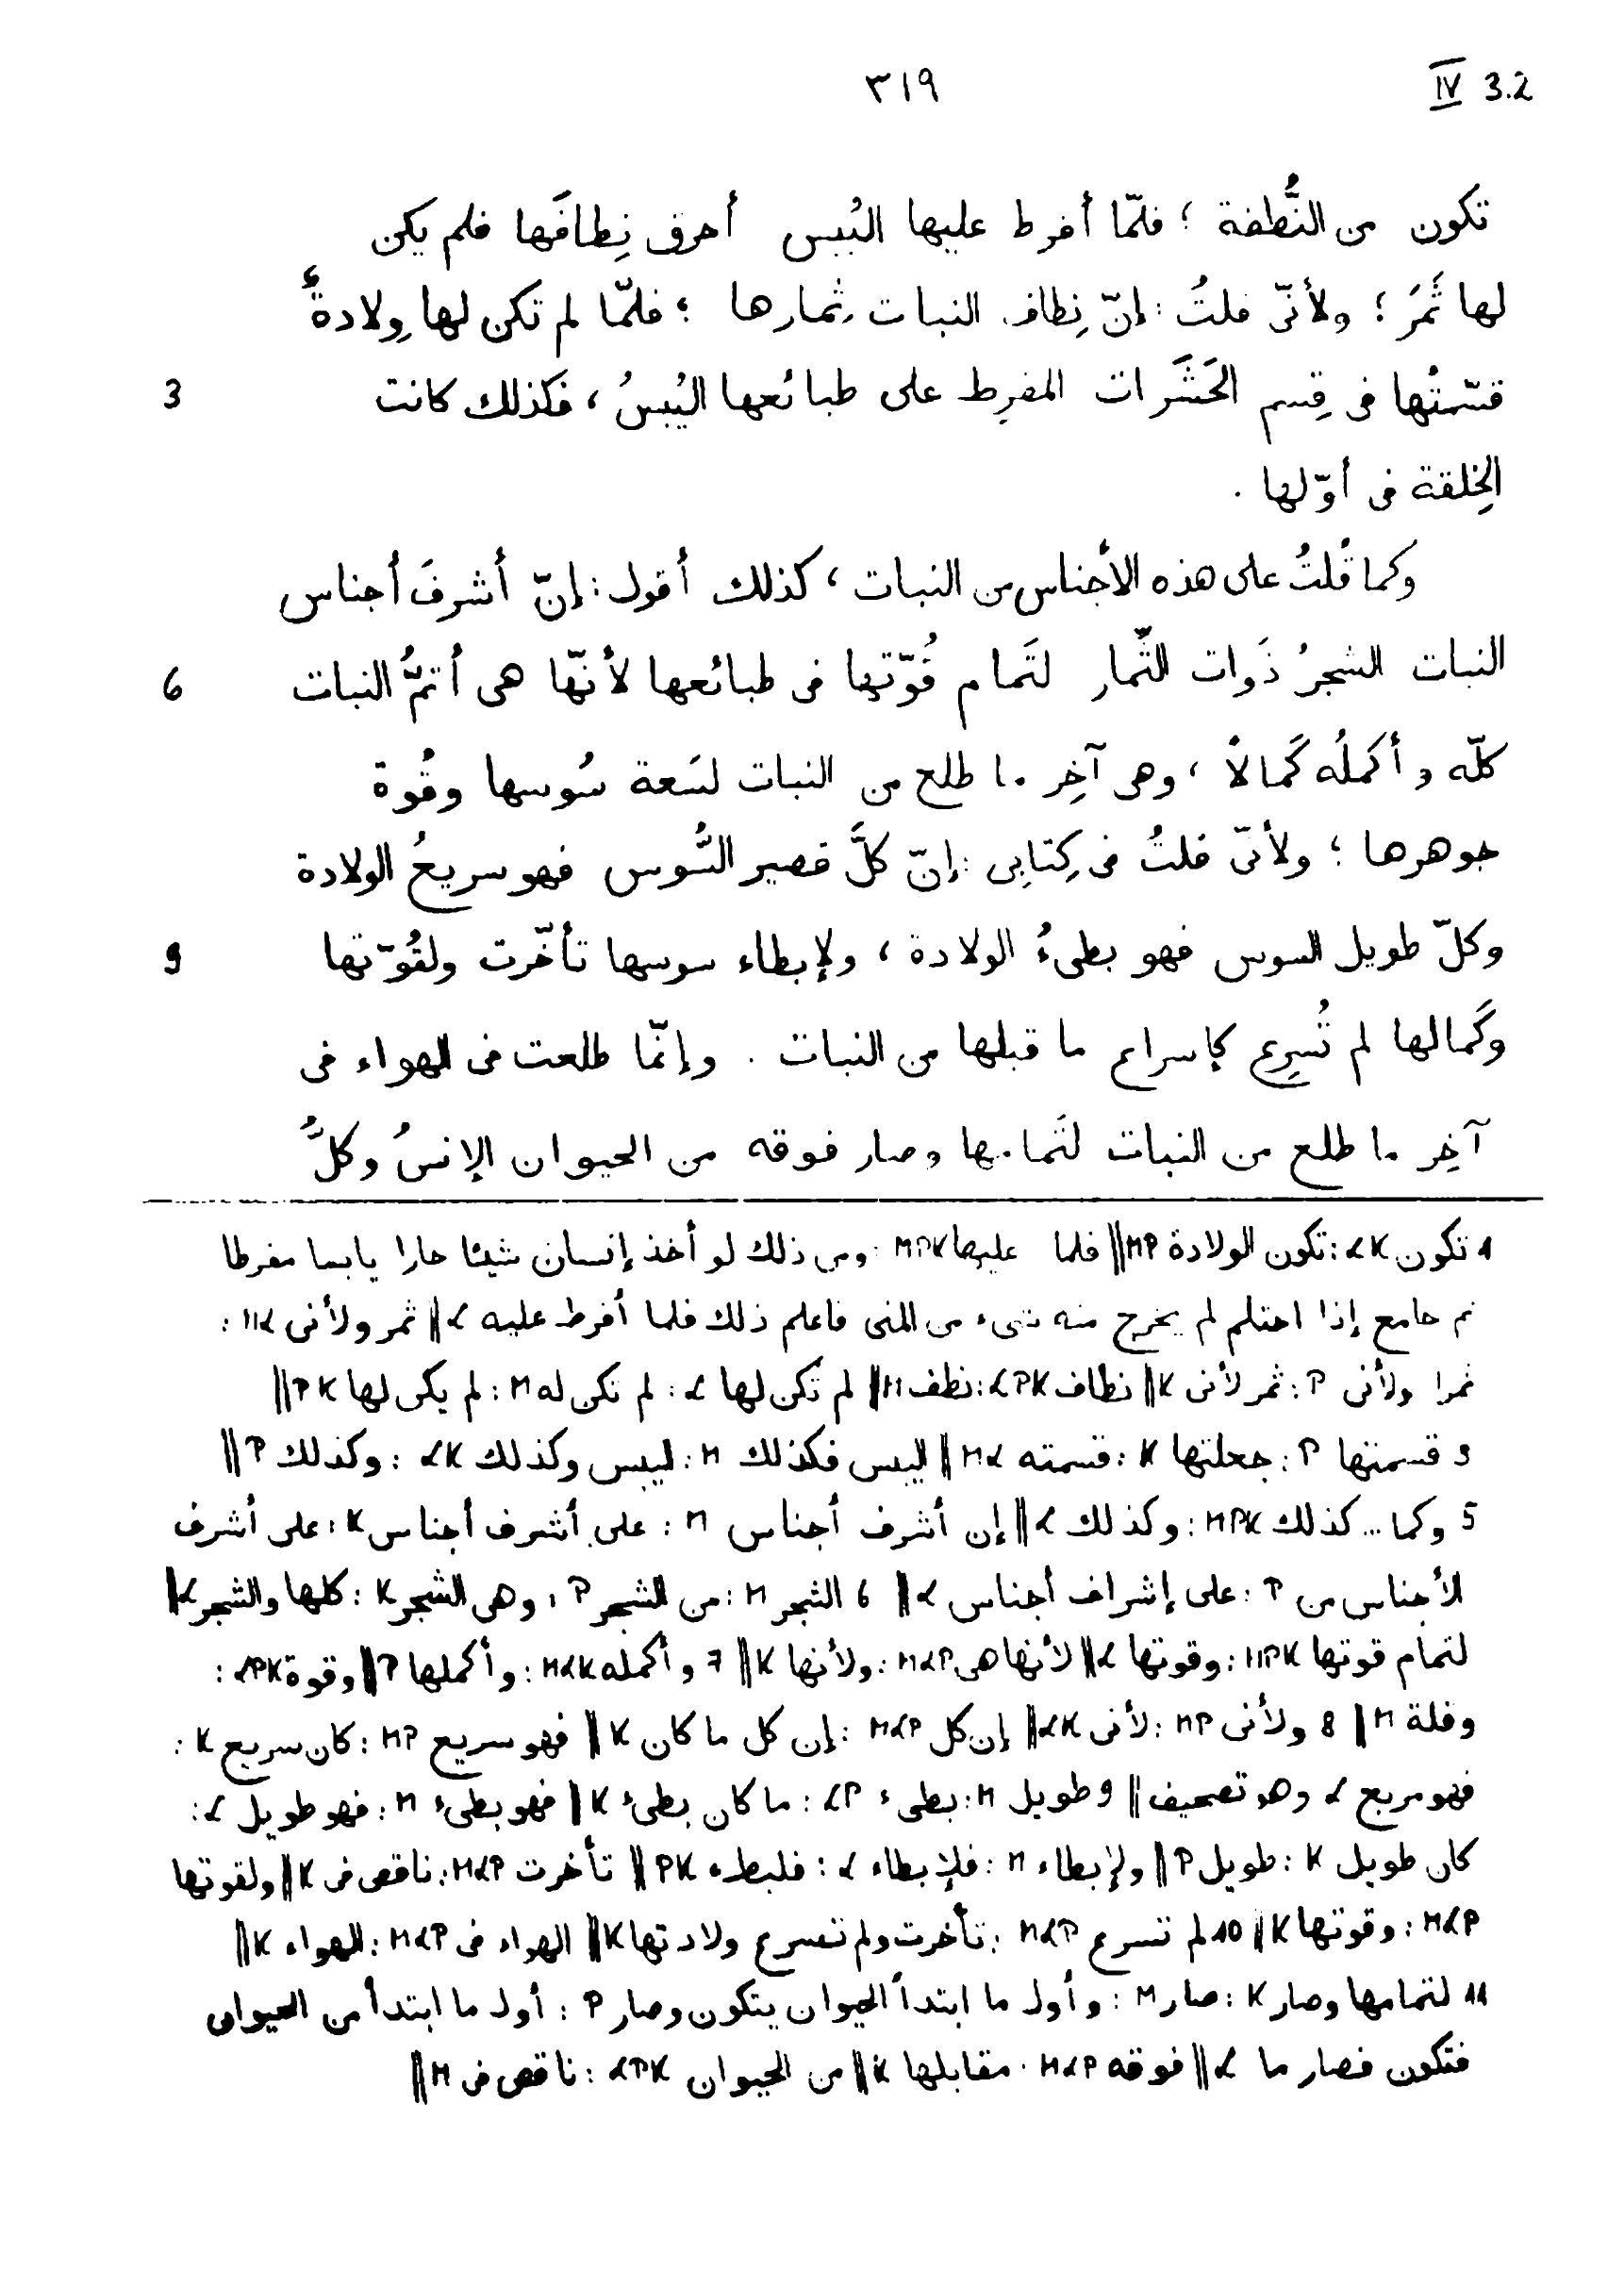 IV 3.2
٣١٩
تكون من النُّطفة ؛ فلمّا أفرط عليها اليُبس أحرق نِطافَها فلم يكن
لها ثَمَرٌ ؛ ولأنّى قلتُ : إنّ نِطاف النبات ثِمارها ؛ فلمّا لم تكن لها وِلادةٌ
قسّمتُها فى قِسم الحَشَرات المفرِط على طبائعها اليُبسُ ، فكذلك كانت 3
الخِلقة فى أوّلها .
وكما قُلتُ على هذه الأجناس من النبات ، كذلك أقول : إنّ أشرفَ أجناس
النبات الشجرُ ذَوات الثِّمار لتَمام قُوّتها فى طبائعها لأنّها هى أتمُّ النبات 6
كلّه وأكملُه كَمالاً ، وهى آخِر ما طلع من النبات لسَعة سُوسها وقُوة
جوهرها ؛ ولأنّى قلتُ فى كِتابِى : إنّ كلَّ قصير السُّوس فهو سريعُ الولادة
وكلّ طويل السوس فهو بطىءُ الولادة ، ولإبطاء سوسها تأخّرت ولقُوّتها 9
وكَمالها لم تُسرِع كإسراع ما قبلها من النبات . وإنّما طلعت فى الهواء فى
آخِر ما طلع من النبات لتَمامها وصار فوقه من الحيوان الإنسُ وكلُّ
1 تكون LK : تكون الولادة MP || فلما عليها MPK : ومن ذلك لو أخذ إنسان شيئا حارا يابسا مفرطا
ثم جامع إذا احتلم لم يخرج منه شىء من المنى فاعلم ذلك فلما أفرط عليه L || ثمر ولأنى LM :
ثمرا ولأنى P : ثمر لأنى K || نطاف LPK : نظف M || لم تكن لها L : لم تكن له M : لم يكن لها PK ||
3 قسمتها P : جعلتها K : قسمته ML || اليبس فكذلك M : اليبس وكذلك LK : وكذلك P ||
5 وكما ... كذلك MPK : وكذلك L || إن أشرف أجناس M : على أشرف أجناس K : على أشرف
الأجناس من P : على إشراف أجناس L || 6 الشجر M : من الشجر P : وهى الشجر K : كلها والشجر L ||
لتمام قوتها MPK : وقوتها L || لأنها هى MLP : ولأنها K || 7 وأكمله MLK : وأكملها P || وقوة LPK :
وقلة M || 8 ولأنى MP : لأنى LK || إن كل MLP : إن كل ما كان K || فهو سريع MP : كان سريع K :
فهو مربع L وهو تصحيف || 9 طويل M : بطىء LP : ما كان بطئ K || فهو بطىء M : فهو طويل L :
كان طويل K : طويل P || ولإبطاء M : فلإبطاء L : فلبطء PK || تأخرت MLP : ناقص فى K || ولقوتها
MLP : وقوتها K || 10 لم تسرع MLP : تأخرت ولم تسرع ولادتها K || الهواء فى MLP : الهواء K ||
11 لتمامها وصار K : صار M : وأول ما ابتدأ الحيوان يتكون وصار P : أول ما ابتدأ من الحيوان
فتكون فصار ما L || فوقه MLP : مقابلها K || من الحيوان LPK : ناقص فى M ||